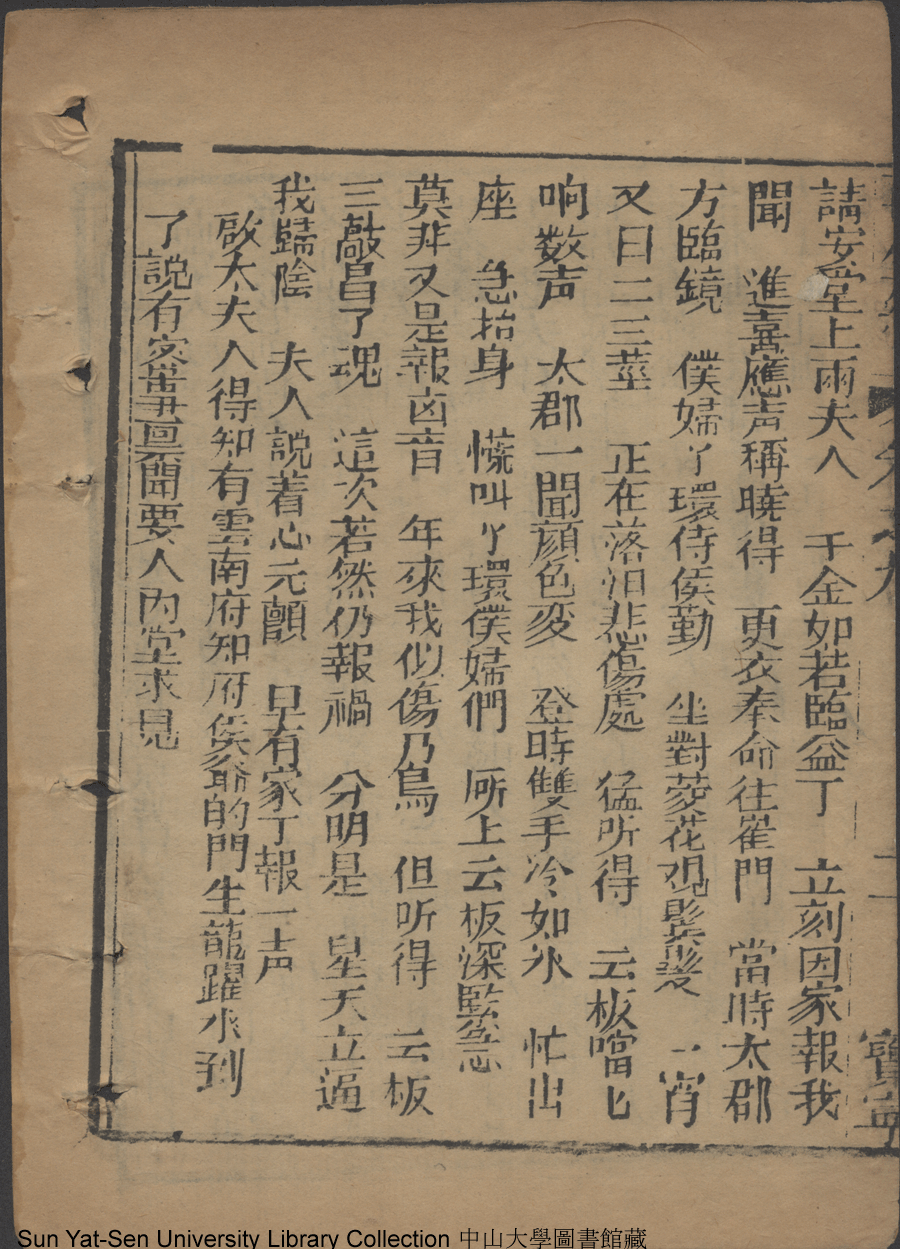 請安堂上兩夫人 千金如若臨盆了 立刻因家報我
聞 進喜應声稱曉得 更衣奉命往崔門 當時太郡
方臨鏡 僕婦丫環侍侯勤 坐對菱花观鬓髮 一宵
又曰二三莖 正在落泪悲傷處 猛听得 云板噹匕
响数声 太郡一聞顔色变 登時雙手冷如氷 忙出
座 急抬身 慌叫丫環僕婦們 厛上云板深
莫非又是報凶音 年來我似傷乃鳥 但听得 云板
三敲昌了魂 這次若然仍報禍 分明是 星天立逼
我歸陰 夫人說着心元顫 早有家丁報一声
啟太夫人得知有雲南府知府侯爺的門生龍躍水到
了說有家事面要人內堂求見
二
寶寧
Sun Yat-Sen University Library Collection 中山大學圖書館藏